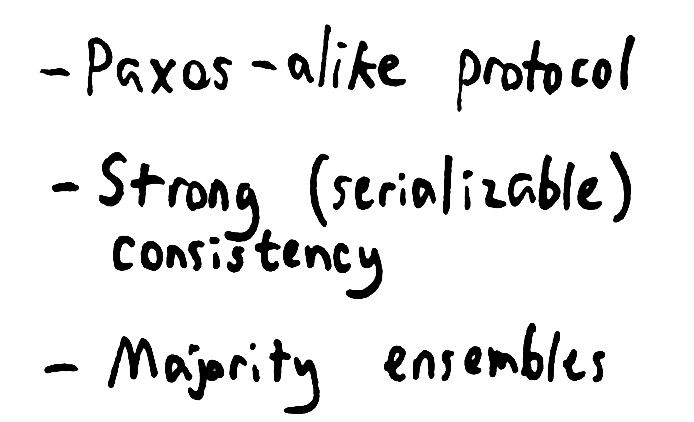 - Paxos-alike protocol
- Strong (serializable)
consistency
- Majority ensembles